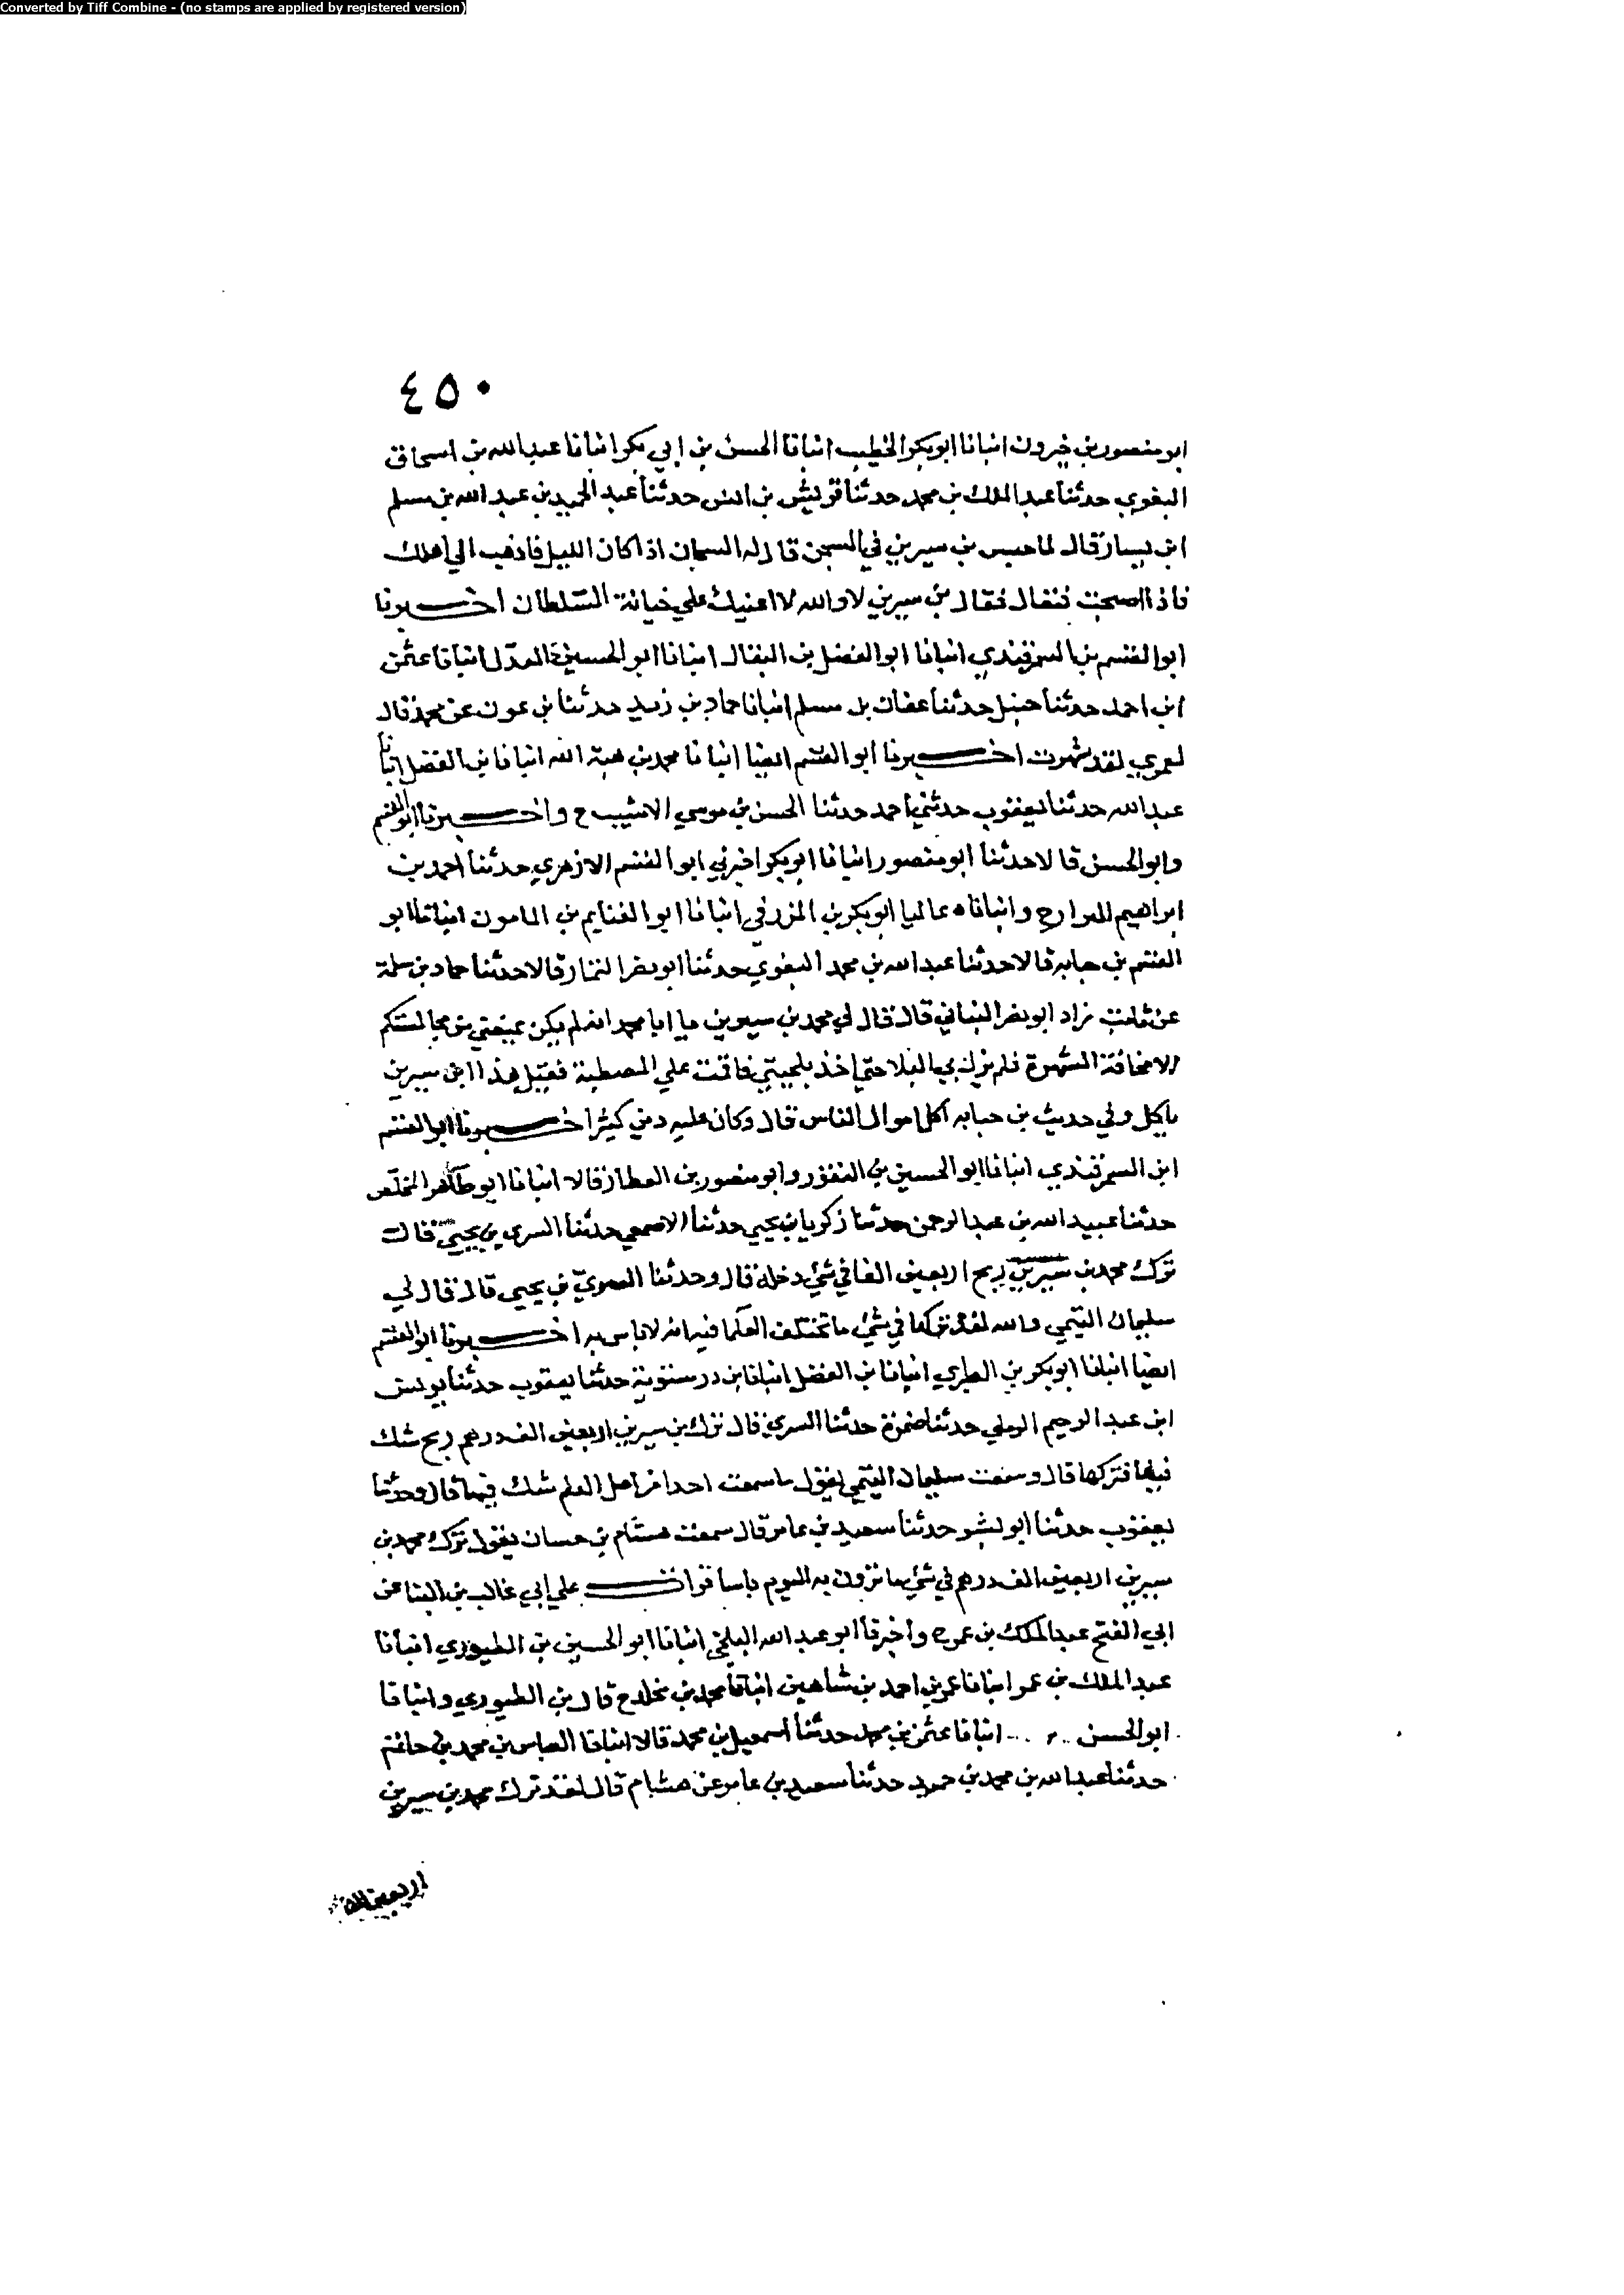 Converted by Tiff Combine - (no stamps are applied by registered version)
٤٥٠
ابو منصور بن خيرون انبانا ابو بكر الخطيب انبانا الحسن بن ابي بكر انبانا عبد الله بن اسحاق
البغوي حدثنا عبد الملك بن محمد حدثنا قريش بن انس حدثنا عبد الحميد بن عبد الله بن مسلم
ابن يسار قال لما حبس بن سيرين في السجن قال له السجان اذا كان الليل فاذهب الي اهلك
فاذا اصبحت فتعال فقال بن سيرين لا والله لا اعنيك علي خيانة السلطان اخبرنا
ابو القسم بن السمرقندي انبانا ابو الفضل بن البقال انبانا ابو الحسين المعدل انبانا عثمن
ابن احمد حدثنا حنبل حدثنا عفان بن مسلم انبانا حماد بن زيد حدثنا بن عون عن محمد قال
لعمري لقد شهرت اخبرنا ابو القسم ايضا انبانا محمد بن هبة الله انبانا بن الفضل انبانا
عبد الله حدثنا يعقوب حدثني احمد حدثنا الحسن بن موسي الاشيب ح واخبرنا ابو القسم
وابو الحسن قالا حدثنا ابو منصور انبانا ابو بكر اخبرني ابو القسم الازهري حدثنا احمد بن
ابراهيم ح وانباناه عاليا ابو بكر بن المزرفي انبانا ابو الغنايم بن المامون انبانا ابو
القسم بن حبابه قالا حدثنا عبد الله بن محمد البغوي حدثنا ابو نصر التمار قالا حدثنا حماد بن سلمة
عن ثابت زاد ابو نصر البناني قال قال لي محمد بن سيرين يا ابا محمد انه لم يكن يمنعني من مجالستكم
الا مخافة الشهرة فلم يزل بي البلا حتي اخذ بلحيتي فاقمت علي المصطبة فقيل هذا ابن سيرين
ياكل وفي حديث بن حبابه اكل اموال الناس قال وكان عليه دين كثير اخبرنا ابو القسم
ابن السمرقندي انبانا ابو الحسين بن النقور وابو منصور بن العطار قالا انبانا ابو طاهر المخلص
حدثنا عبيد الله بن عبد الرحمن حدثنا زكريا بن يحيي حدثنا الاصمعي حدثنا السري بن يحيي قال
ترك محمد بن سيرين ربح اربعين الفا في شي دخله قال وحدثنا السري بن يحيي قال قال لي
سليمان التيمي والله لقد تركها في شي ما تختلف العلما فيه انه لا باس به اخبرنا ابو القسم
ايضا انبانا ابو بكر بن الطبري انبانا بن الفضل انبانا بن درستوية حدثنا يعقوب حدثنا يونس
ابن عبد الرحيم الرملي حدثنا ضمرة حدثنا السري قال ترك بن سيرين اربعين الف درهم ربح شك
فيها فتركها قال وسمعت سليمان التيمي يقول ما سمعت احدا من اهل العلم شك فيها قال وحدثنا
يعقوب حدثنا ابو بشر حدثنا سعيد بن عامر قال سمعت هشام بن حسان يقول ترك محمد بن
سيرين اربعين الف درهم في شي ما ترون به اليوم باسا قرات علي ابي غالب بن البنا عن
ابي الفتح عبد الملك بن عمر ح واخبرنا ابو عبد الله البلخي انبانا ابو الحسين بن الطيوري انبانا
عبد الملك بن عمر انبانا عمر بن احمد بن شاهين انبانا محمد بن مخلد ح قال بن الطيوري وانبانا
ابو الحسن انبانا عثمن بن محمد حدثنا اسمعيل بن محمد قالا انبانا العباس بن محمد بن حاتم
حدثنا عبد الله بن محمد بن حميد حدثنا سعيد بن عامر عن هشام قال لقد ترك محمد بن سيرين
اربعين الف